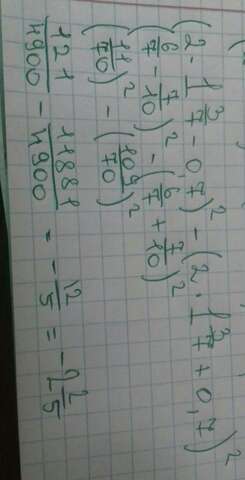 (2 · 1 3/7 - 0,7)² - (2 · 1 3/7 + 0,7)²
(6/7 - 7/10)² - (6/7 + 7/10)²
(11/70)² - (109/70)²
121/4900 - 11881/4900 = - 12/5 = -2 2/5